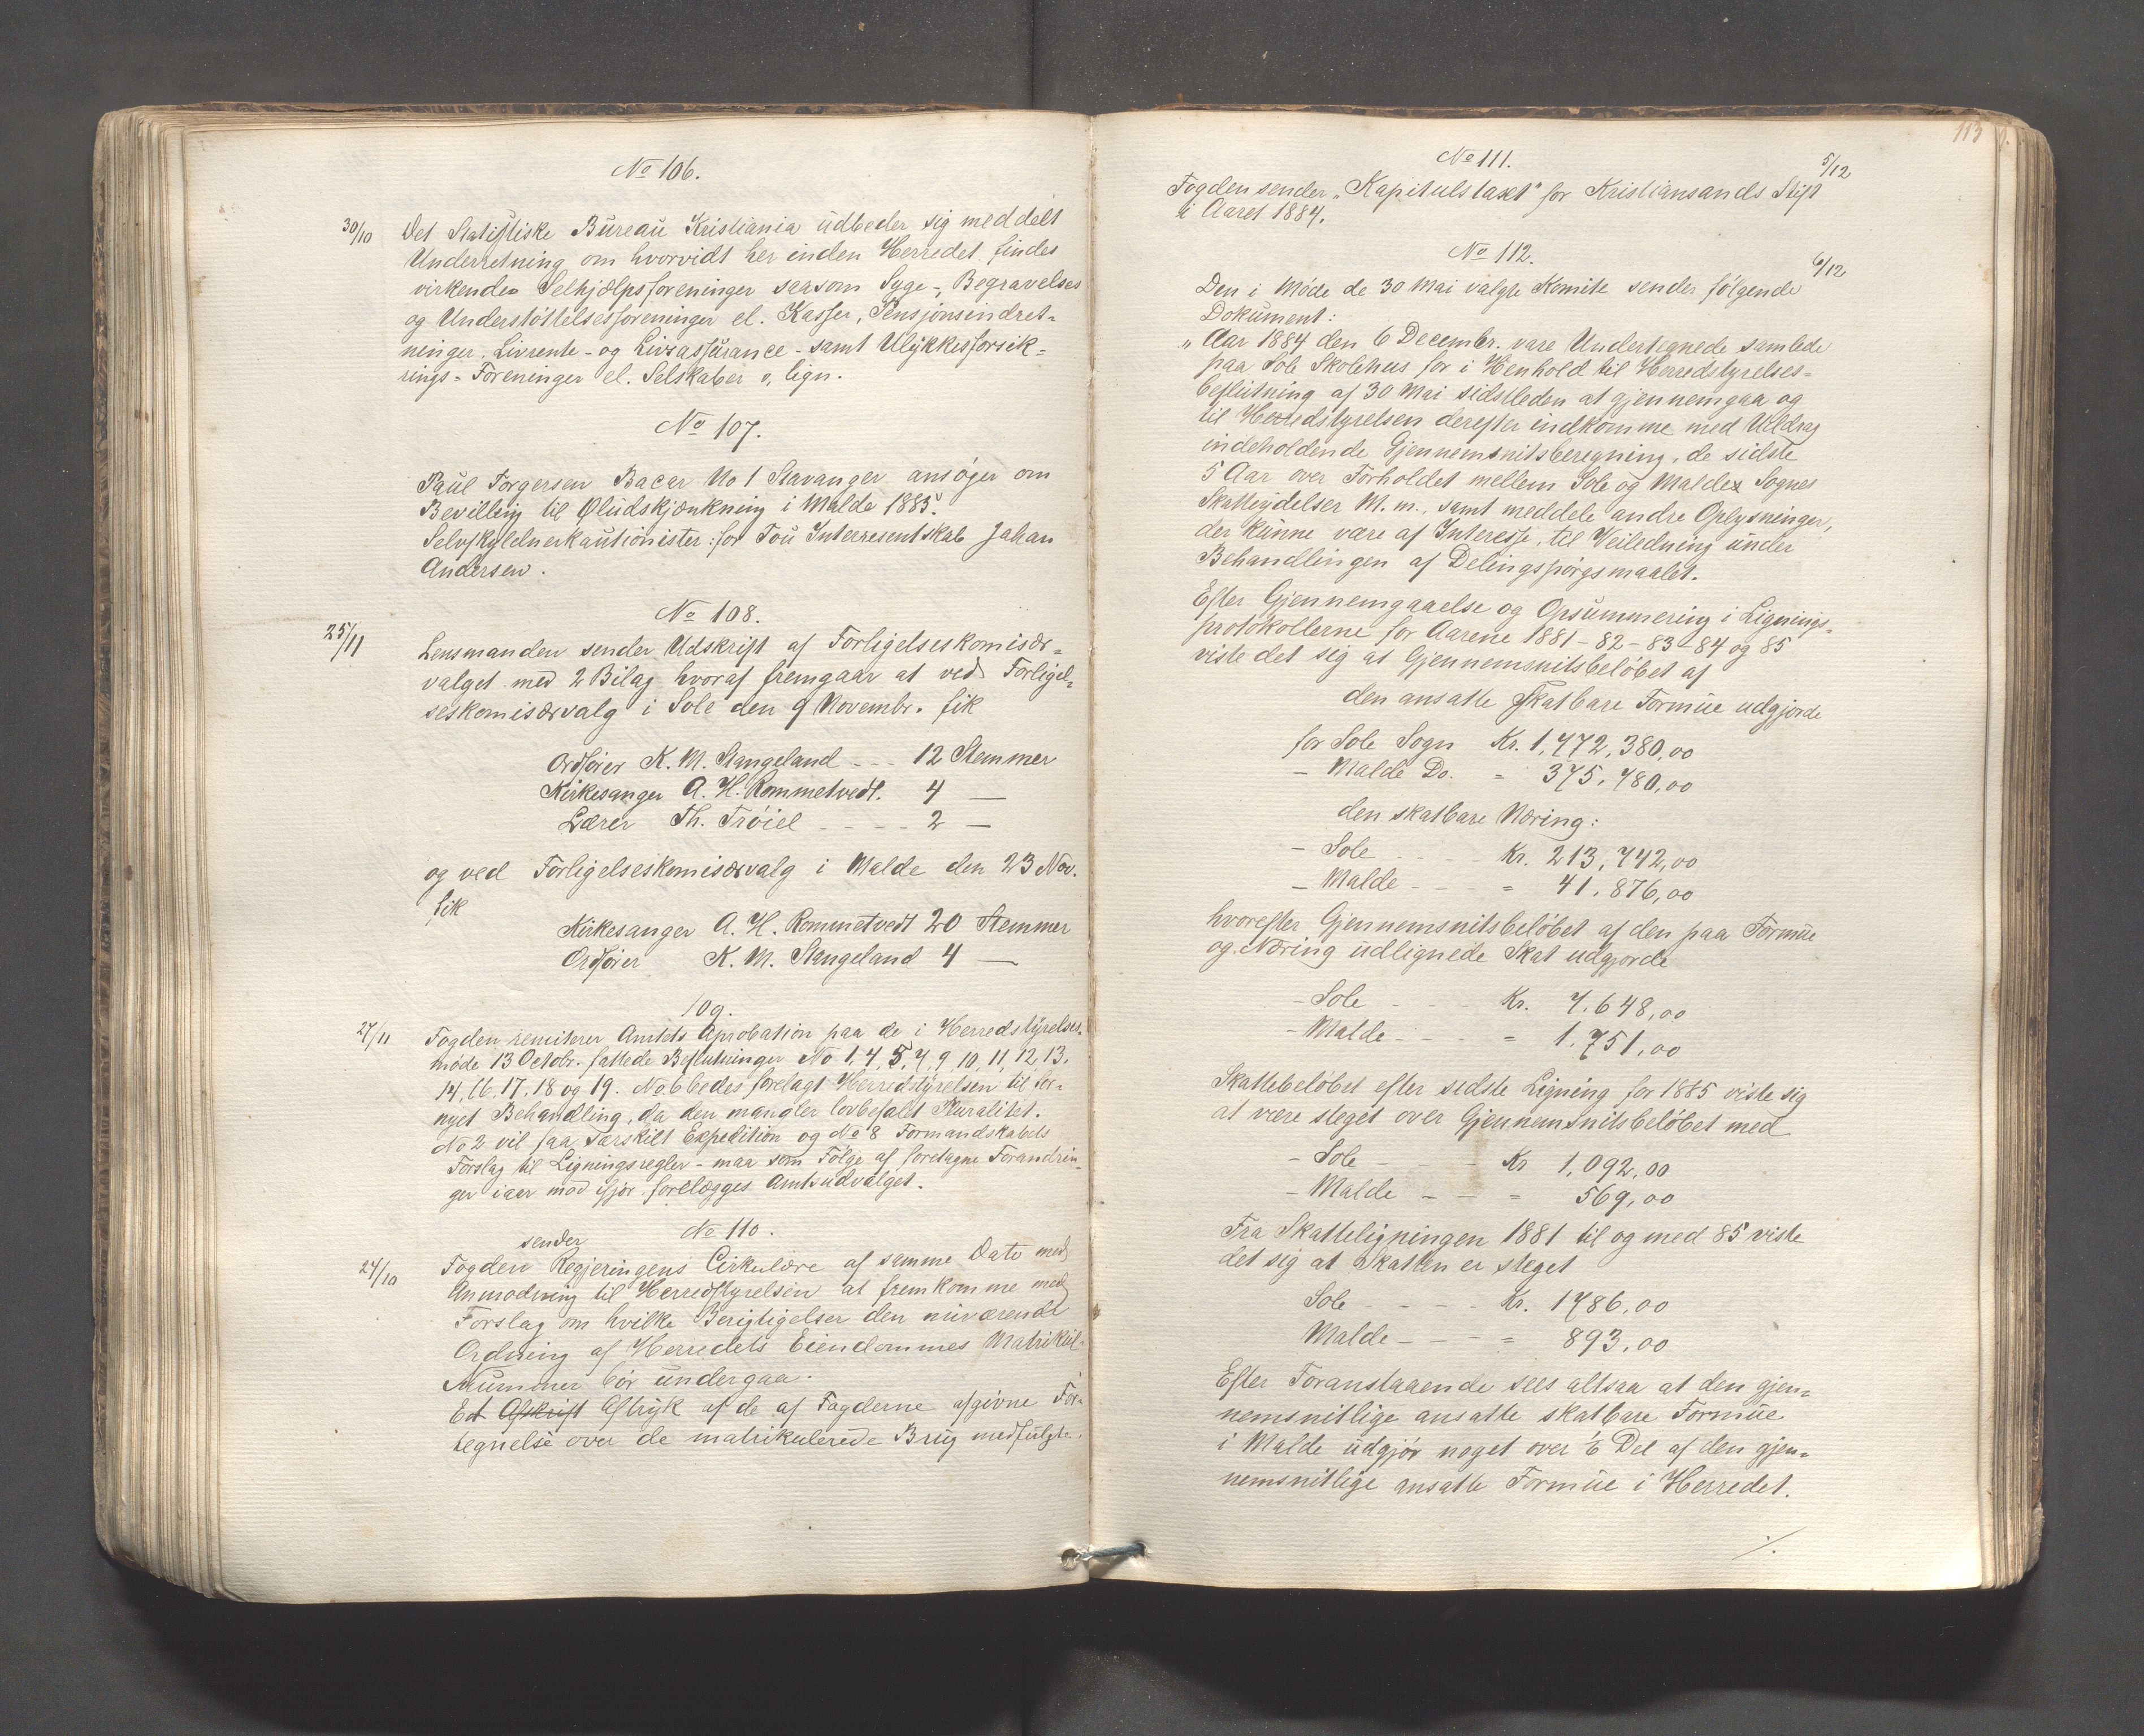 No 106.
30/10 Det Statistiske Bureau Kristiania udbeder sig meddelt
Underretning om hvorvidt her inden Herredet findes
virkende Selhjælpsforeninger seasom Syge-, Begravelses
og Understøttelsesforeninger el. Kasser, Pensjonsindret-
ninger, Livrente- og Livsassurance- samt Ulykkesforsik-
rings-Foreninger el. Selskaber o. lign.
No 107.
Paul Torgersen Bacar No 1 Stavanger ansøger om
Bevilling til Øludskjænkning i Malde 1885.
Selvskyldnerkautionister: for Tou Interresentskab Johan
Andersen.
No 108.
25/11 Lensmanden sender Udskrift af Forligelseskomisær-
valget med 2 Bilag hvoraf fremgaar at ved Forligel-
seskomisærvalg i Sole den 9 Novembr. fik
Ordfører K. M. Stangeland - - - 12 Stemmer
Kirkesanger A. H. Rommetvedt. 4 —
Lærer Th. Trøiel - - - - 2 —
og ved Forligelseskomisærvalg i Malde den 23 Nov.
fik
Kirkesanger A. H. Rommetvedt 20 Stemmer
Ordfører K. M. Stangeland 4 —
109.
27/11 Fogden remiterer Amtets Aprobation paa de i Herredstyrelses-
møde 13 Octobr. fattede Beslutninger No 1, 4, 5, 7, 9, 10, 11, 12, 13,
14, 16, 17, 18 og 19. No 6 bedes forelagt Herredstyrelsen til for-
nyet Behandling, da den mangler lovbefalet Pluralitet.
No 2 vil faa særskilt Expedition og No 8 Formandskabets
Forslag til Ligningsregler - maa som Følge af foretagne Forandrin-
ger iaar mod ifjor forelægges Amtsudvalget.
No 110.
sender
24/10 Fogden Regjeringens Cirkulære af samme Dato med
Anmodning til Herredstyrelsen at fremkomme med
Forslag om hvilke Berigtigelser den nuværende
Ordning af Herredets Eiendommes Matrikul-
Nummer bør undergaa.
Et Afskrift Aftryk af de af Fogderne afgivne For-
tegnelse over de matrikulerede Brug medfulgte.
113
No 111.
5/12
Fogden sender "Kapitulstaxt" for Kristiansands Stift
i Aaret 1884.
No 112.
6/12
Den i Møde de 30 Mai valgte Komite sender følgende
Dokument:
"Aar 1884 den 6 Decembr. vare Undertegnede samlede
paa Sole Skolehus for i Henhold til Herredstyrelses-
beslutning af 30 Mai sidstleden at gjennemgaa og
til Herredstyrelsen derefter indkomme med Uddrag
indeholdende Gjennemsnitsberegning, de sidste
5 Aar over Forholdet mellem Sole og Malde Sognes
Skatteydelser M. m., samt meddele andre Oplysninger,
der kunne være af Interesse, til Veiledning under
Behandlingen af Delingspørgsmaalet.
Efter Gjennemgaaelse og Opsummering i Lignings-
protokollerne for Aarene 1881-82-83-84 og 85
viste det sig at Gjennemsnitsbeløbet af
den ansatte Skatbare Formue udgjorde
for Sole Sogn Kr. 1,472,380,00
- Malde Do. = 375,480,00
den skatbare Næring:
- Sole - - - Kr. 213,742,00
- Malde - - - = 41,876,00
hvorefter Gjennemsnitsbeløbet af den paa Formue
og Næring udlignede Skat udgjorde
- Sole - - - Kr. 7.648,00
- Malde - - - = 1.751,00
Skattebeløbet efter sidste Ligning for 1885 viste sig
at være steget over Gjennemsnitsbeløbet med
- Sole - - - Kr 1,092,00
- Malde - - = 569,00
Fra Skatteligningen 1881 til og med 85 viste
det sig at Skatten er steget
Sole - - - - Kr. 1786,00
Malde - - - = 893,00
Efter Foranstaaende sees altsaa at den gjen-
nemsnitlige ansatte skatbare Formue
i Malde udgjør noget over 1/6 Del af den gjen-
nemsnitlige ansatte Formue i Herredet.
./.